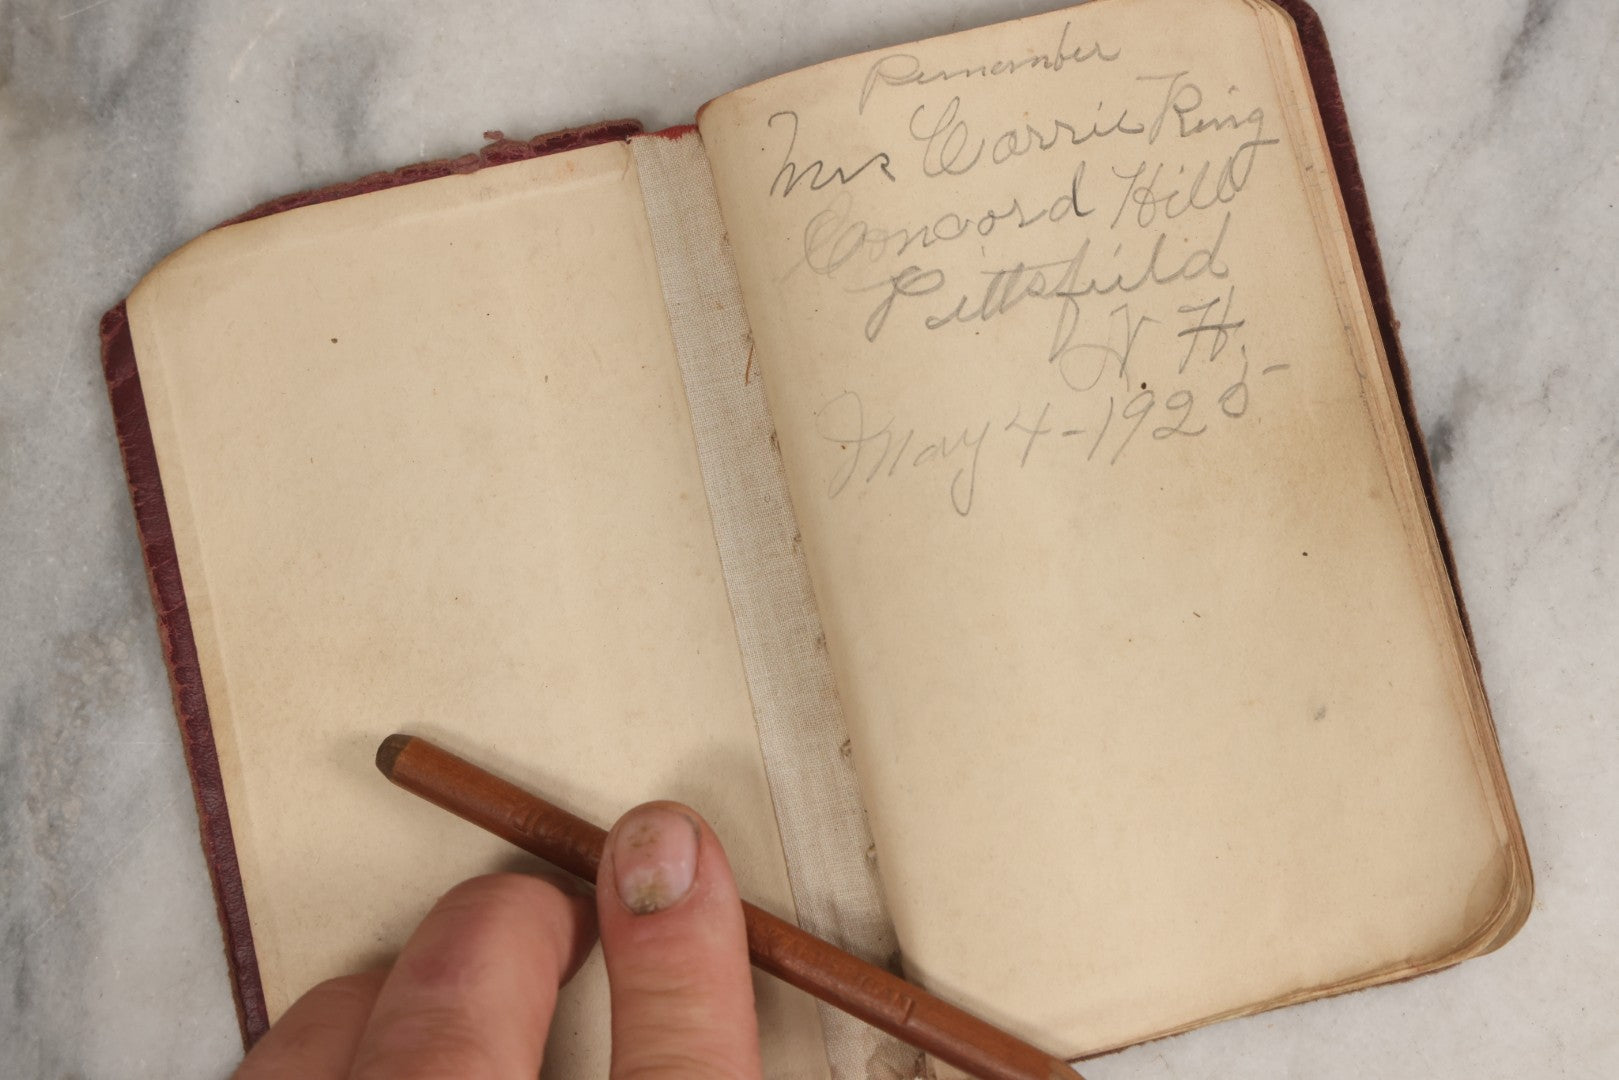 Remember
Mrs Carrie King
Concord Hill
Pittsfield
N H
May 4-1925-